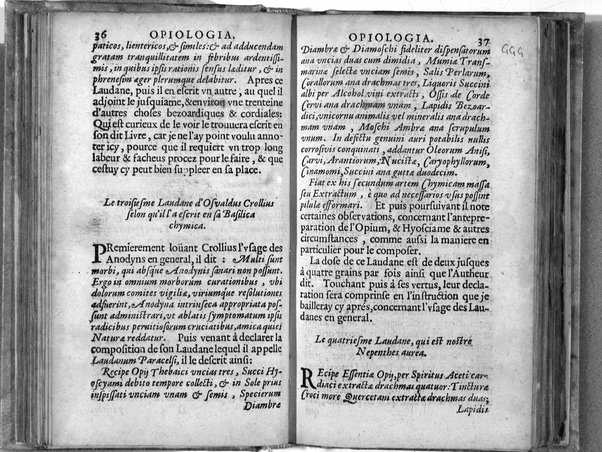 36 OPIOLOGIA.
paticos, lientericos, & similes: & ad adducendam
gratam tranquillitatem in febribus ardentissi-
mis, in quibus ipsis rationis sensus laditur, & in
phrenesim æger plerumque delabitur. Apres ce
Laudane, puis il en escrit vn autre, au quel il
adjoint le jusquiame, & environ vne trenteine
d'autres choses bezoardiques & cordiales:
Qui est curieux de le voir le trouuera escrit en
son dit Livre, car je ne l'ay point voulu anno-
ter icy, pource que il requiert vn trop long
labeur & facheus procez pour le faire, & que
cestuy cy peut bien supleer en sa place.
Le troisiesme Laudane d'Osvaldus Crollius
selon qu'il l'a escrit en sa Basilica
chymica.
PRemierement loüant Crollius l'vsage des
Anodyns en general, il dit: Multi sunt
morbi, qui absque Anodynis sanari non possunt.
Ergo in omnium morborum curationibus, vbi
dolorum comites vigilia, viriumque resolutiones
adfuerint, Anodyna intrinseca appropriata pos-
sunt administrari, vt ablatis symptomatum ipsu
radicibus pernitiosorum cruciatibus, amica quies
Naturæ reddatur. Puis venant à declarer la
composition de son Laudane lequel il appelle
Laudanum Paracelsi, il le descrit ainsi:
Recipe Opij Thebaici vncias tres, Succi Hy-
oscyami debito tempore collecti, & in Sole prius
inspissati vnciam vnam & semis, Specierum
Diambræ
OPIOLOGIA. 37
GGG
Diambræ & Diamoschi fideliter dispensatorum
ana vncias duas cum dimidia, Mumiæ Trans-
marinæ selectæ vnciam semis, Salis Perlarum,
Corallorum ana drachmas tres, Liquoris Succini
albi per Alcohol vini extracti, Ossis de Corde
Cervi ana drachmam vnam, Lapidis Bezoar-
dici, vnicornu animalis vel mineralis ana drach-
mam vnam, Moschi Ambræ ana scrupulum
vnum. In defectu genuini auri potabilis nullis
corrosivis conquinati, addantur Oleorum Anisi,
Carvi, Arantiorum, Nucistæ, Caryophyllorum,
Cinamomi, Succini ana guttæ duodecim.
Fiat ex his secundum artem Chymicam massa
seu Extractum, è quo ad necessarios vsus possint
pilulæ efformari. Et puis poursuivant il note
certaines observations, concernant l'antepre-
paration de l'Opium, & Hyosciame & autres
circumstances, comme aussi la maniere en
particulier pour le composer.
La dose de ce Laudane est de deux jusques
à quatre grains par fois ainsi que l'Autheur
dit. Touchant puis à ses vertus, leur decla-
ration sera comprinse en l'instruction que je
bailleray cy aprés, concernant l'vsage des Lau-
danes en general.
Le quatriesme Laudane, qui est nostre
Nepenthes aurea.
REcipe Essentiæ Opij, per Spiritus Aceti car-
diaci extractæ drachmas quatuor: Tincturæ
Croci more Quercetani extractæ drachmas duas;
Lapidis